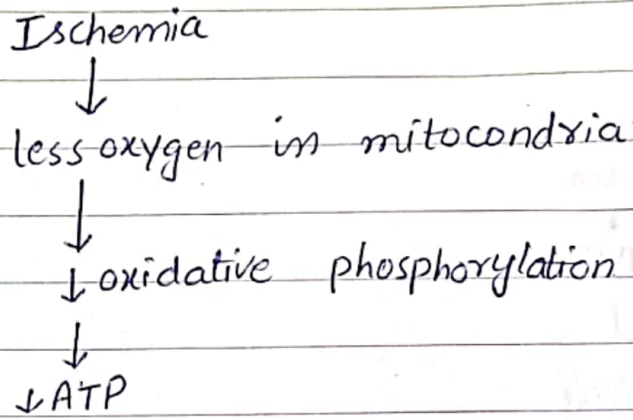 Ischemia
↓
less oxygen in mitocondria
↓
↓ oxidative phosphorylation
↓
↓ ATP